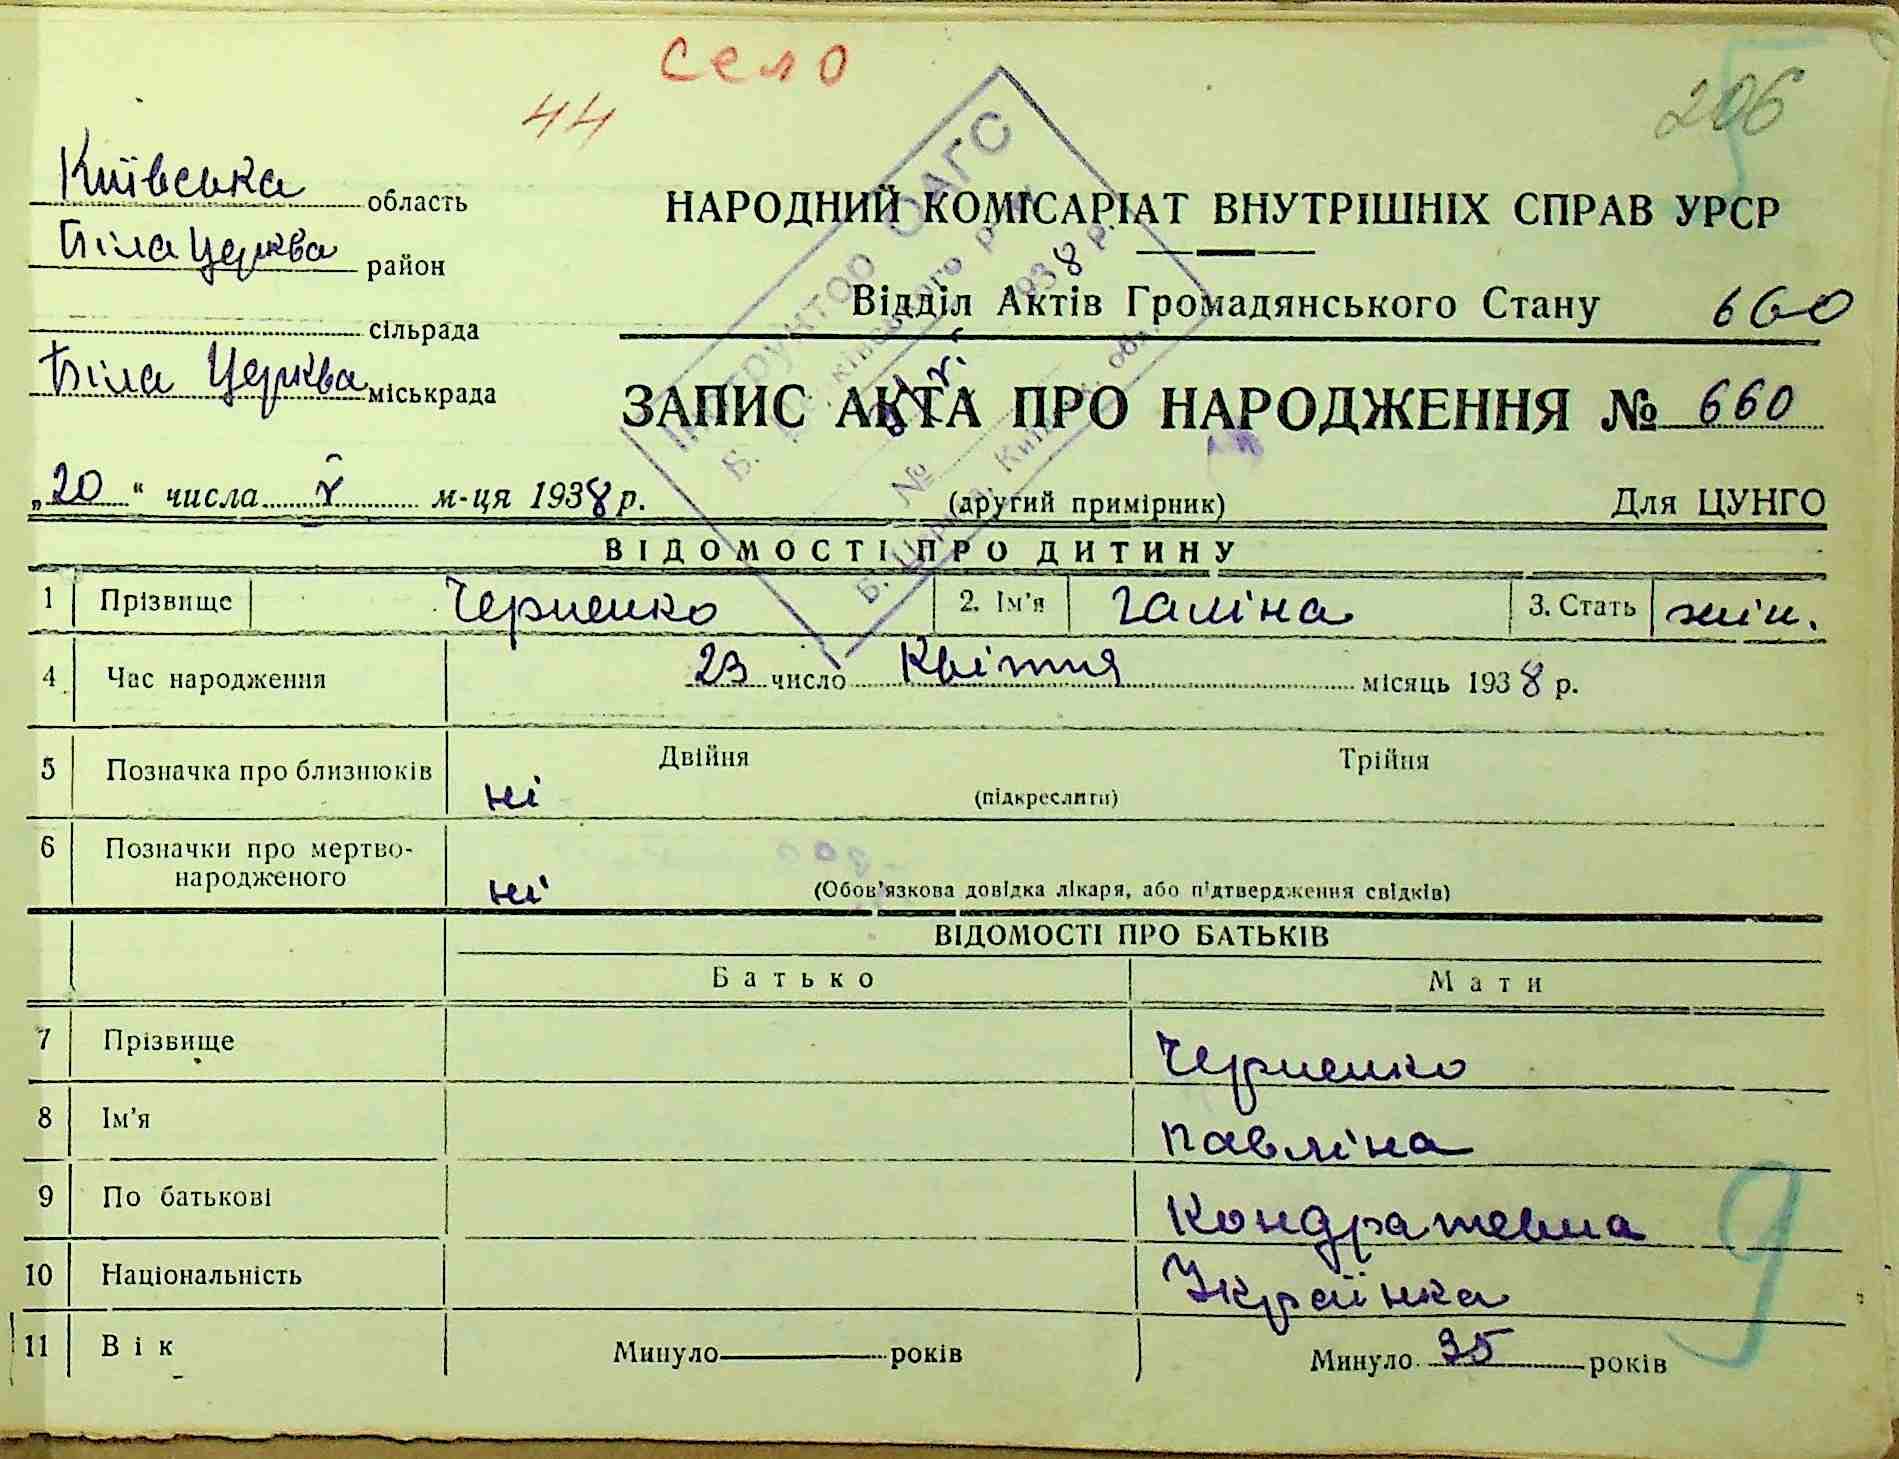 село
44
206
Київська область
Біла Церква район
сільрада
Біла Церква міськрада
НАРОДНИЙ КОМІСАРІАТ ВНУТРІШНІХ СПРАВ УРСР
Відділ Актів Громадянського Стану 660
ЗАПИС АКТА ПРО НАРОДЖЕННЯ № 660
„20“ числа V м-ця 1938 р. (другий примірник) Для ЦУНГО
Інструктор ОАГС
1938 р.
№
ВІДОМОСТІ ПРО ДИТИНУ
1 Прізвище Черненко 2. Ім'я Галіна 3. Стать жін.
4 Час народження 23 число Квітня місяць 1938 р.
5 Позначка про близнюків ні Двійня Трійня
(підкреслити)
6 Позначки про мертво-
народженого ні (Обов'язкова довідка лікаря, або підтвердження свідків)
ВІДОМОСТІ ПРО БАТЬКІВ
Батько Мати
7 Прізвище Черненко
8 Ім'я Павліна
9 По батькові Кондратевна
10 Національність Українка
9
11 Вік Минуло років Минуло 35 років